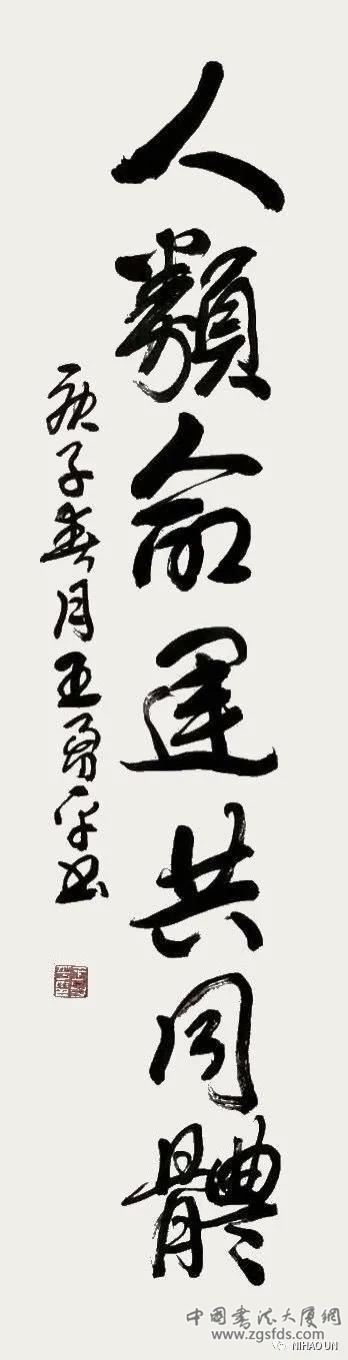 人類命運共同體
庚子春月王勇平书
中國書法大厦網
www.zgsfds.com
NIHAO UN